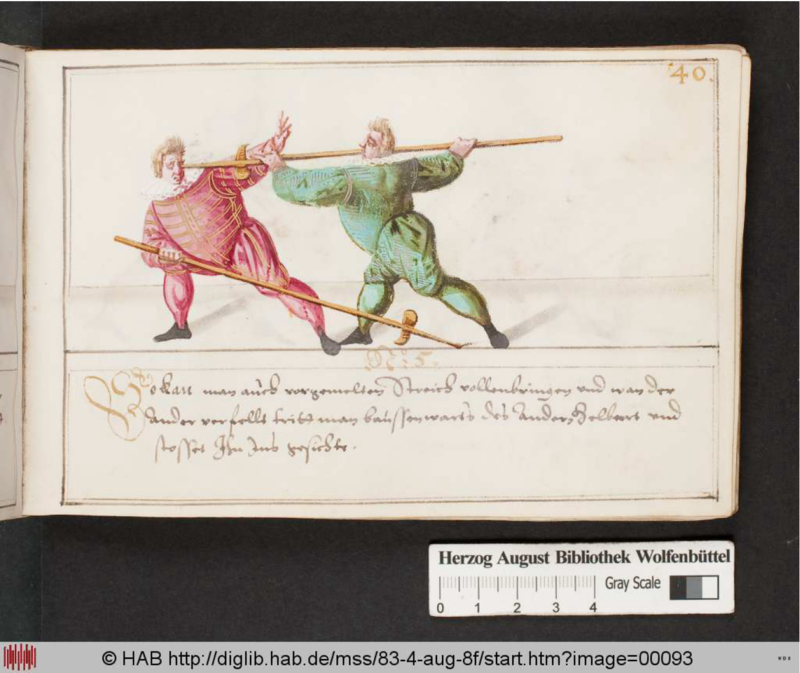 40.
No 5.
So kan man auch vorgemelten Streich vollenbringen und wan der
ander verfellt tritt man haussenwarts des andern Helbart und
stosset Ihn Ins gesichte.
Herzog August Bibliothek Wolfenbüttel
Gray Scale
0 1 2 3 4
© HAB http://diglib.hab.de/mss/83-4-aug-8f/start.htm?image=00093